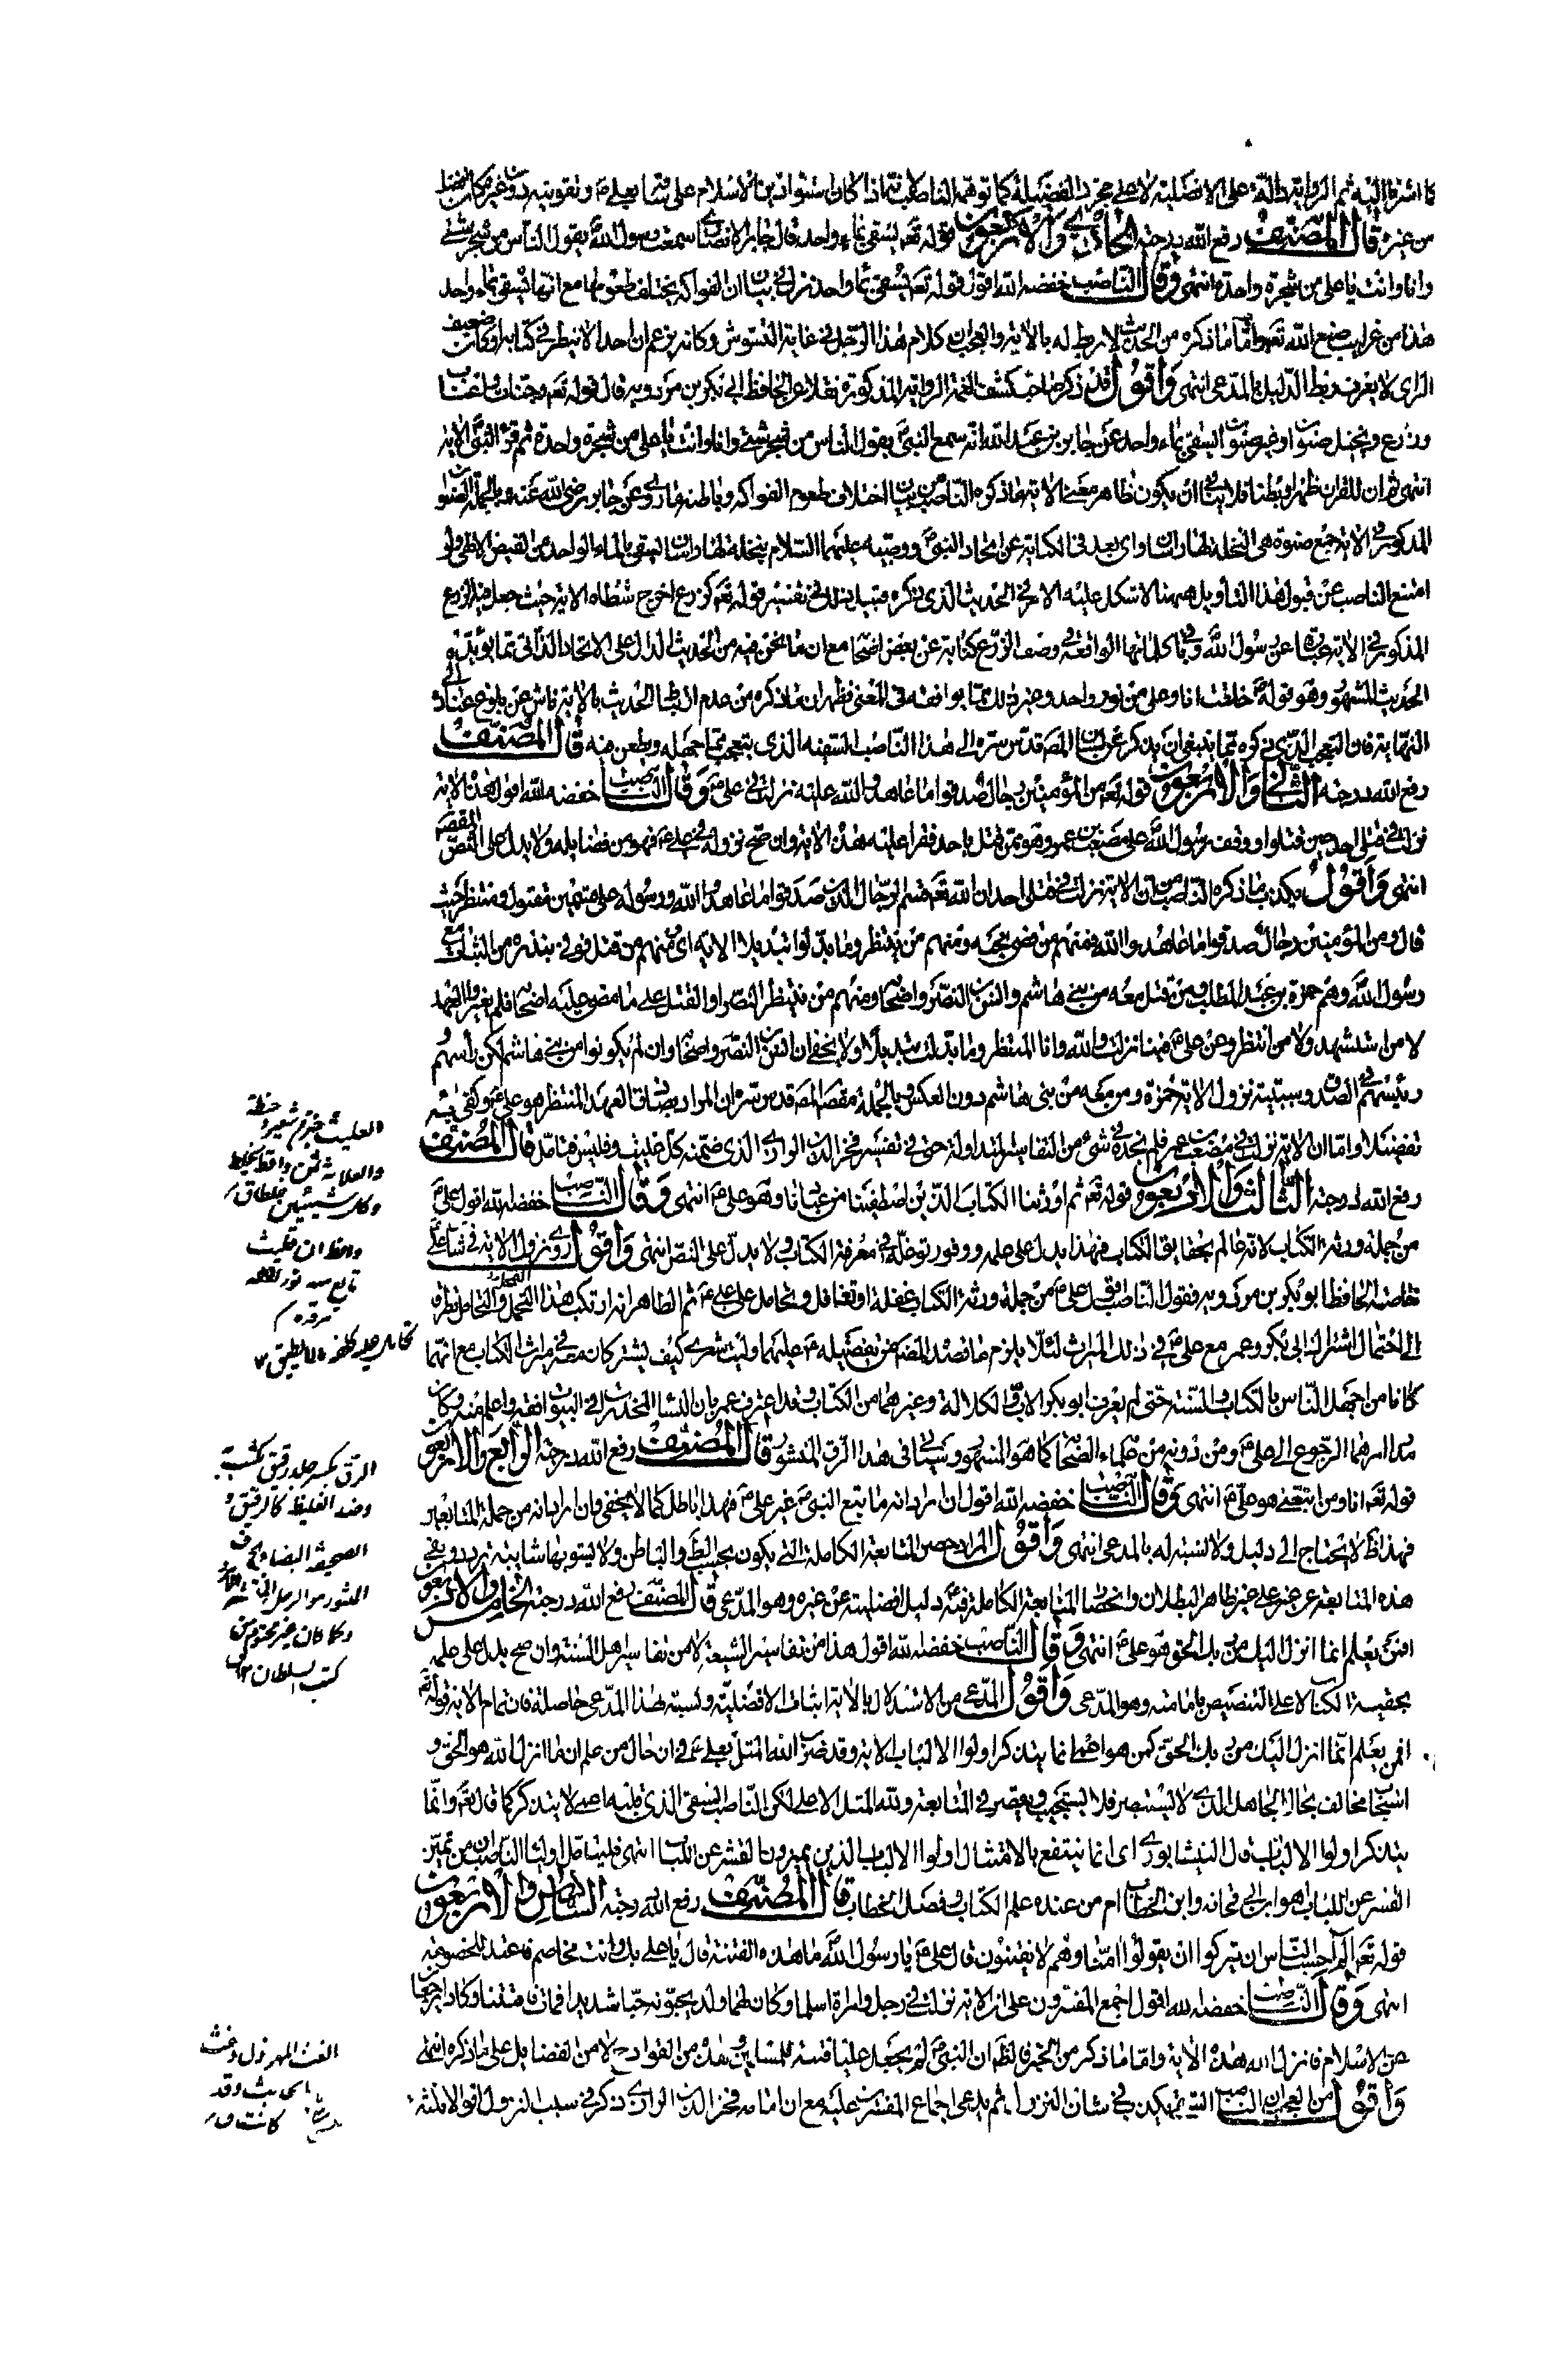 كما اشرنا اليه ثم الرواية دالة على الافضلية لا على مجرد الفضيلة كما توهمه الناصب لانه اذا كان استواء دين الاسلام على ساقه بعلي ع وتقويته به دون غيره كان افضل
من غيره قال المصنف رفع الله درجته الحادي والاربعون قوله تعه يسقى بماء واحد قال جابر الانصاري سمعت رسول الله ص يقول الناس من شجر شتى
وانا وانت يا علي من شجرة واحدة انتهى وقال الناصب خفضه الله اقول قوله تعه يسقى بماء واحد نزل في بيان ان الفواكه يختلف طعومها مع انها تسقى بماء واحد
هذا من غرايب صنع الله تعه واما ما ذكره من الحديث لا ربط له بالاية والعجب ان كلام هذا الرجل في غاية التشوش وكانه يزعم ان احدا لا ينظر في كتابه او كان ضعيف
الراي لا يعرف ربط الدليل بالمدعى انتهى واقول قد ذكر صاحب كشف الغمة الرواية المذكورة نقلا عن الحافظ ابي بكر بن مردويه قال قوله تعه وجنات من اعناب
وزرع ونخيل صنوان وغير صنوان يسقى بماء واحد عن جابر بن عبد الله انه سمع النبي ص يقول الناس من شجر شتى وانا وانت يا علي من شجرة واحدة ثم قرء النبي ص الاية
انتهى ثم ان للقران ظهرا وبطنا فلا ينافي ان يكون ظاهر معنى الاية ما ذكره الناصب من بيان اختلاف طعوم الفواكه وباطنه ما روي عن جابر رضي الله عنه وبالجملة الصنوان
المذكور في الاية جمع صنوة هي النخلة لها راسان واي بعد في الكناية عن اتحاد النبي ص ووصيه عليهما السلام بنخلة لها راسان يسقى بالماء الواحد من الفيض الازلي ولو
امتنع الناصب عن قبول هذا التاويل ههنا لاشكل عليه الامر في الحديث الذي ذكره قبيل ذلك في تفسير قوله تعه كزرع اخرج شطأه الاية حيث جعل فيه الزرع
المذكور في الاية عبارة عن رسول الله ص وباقي كلماتها الواقعة في وصف الزرع كناية عن بعض اصحابه مع ان ما نحن فيه من الحديث الدال على الاتحاد الذاتي مما يؤيده
الحديث المشهور وهو قوله ص خلقت انا وعلي من نور واحد وغير ذلك مما يوافقه في المعنى فظهر ان ما ذكره من عدم ارتباط الحديث بالاية ناش عن بلوغ عناده الى
النهاية فان العجب الذي ذكره مما ينبغي ان يذكر عن لسان المص قدس سره الى هذا الناصب السفيه الذي يتعجب مما جهله ويطعن فيه قال المصنف
رفع الله درجته الثاني والاربعون قوله تعه من المؤمنين رجال صدقوا ما عاهدوا الله عليه نزلت في علي ع وقال الناصب خفضه الله اقول هذه الاية
نزلت في قتلى احد حين قتلوا ووقف رسول الله ص على مصعب بن عمير وهو ممن قتل باحد فقرا عليه هذه الاية وان صح نزوله في علي ع فهو من فضايله ولا يدل على النص المقصد
انتهى واقول يكذب ما ذكره الناصب من ان الاية نزلت في قتلى احد ان الله تعه قسم الرجال الذين صدقوا ما عاهدوا الله ورسوله على قسمين مقتول ومنتظر حيث
قال ومن المؤمنين رجال صدقوا ما عاهدوا الله فمنهم من قضى نحبه ومنهم من ينتظر وما بدلوا تبديلا الاية اي منهم من قتل فوفى بنذره من الثبات مع
رسول الله ص وهم حمزة بن عبد المطلب ومن قتل معه من بني هاشم وانس بن النضر واصحابه ومنهم من ينتظر النصر او القتل على ما مضى عليه اصحابه فلم يغيروا العهد
لا من استشهد ولا من انتظر وعن علي ع فينا نزلت والله وانا المنتظر وما بدلت تبديلا ولا يخفى ان انس بن النضر واصحابه وان لم يكونوا من بني هاشم لكن راسهم
ورئيسهم في الصدق وسببية نزول الاية حمزة ومن معه من بني هاشم دون العكس وبالجملة مقصد المص قدس سره ان المراد بصادق العهد المنتظر هو علي ع وكفى به
تفضيلا واما ان الاية نزلت في مصعب بن عمير فلم نجده في شئ من التفاسير المتداولة حتى في تفسير فخر الدين الرازي الذي ضمنه كل غليث وفليس فتامل قال المصنف
رفع الله درجته الثالث والاربعون قوله تعه ثم اورثنا الكتاب الذين اصطفينا من عبادنا وهو علي ع انتهى وقال الناصب خفضه الله اقول علي ع
من جملة ورثة الكتاب لانه عالم بحقايق الكتاب فهذا يدل على علمه ووفور توغله في معرفة الكتاب ولا يدل على النص انتهى واقول روى نزول الاية في شان علي ع
خاصة الحافظ ابو بكر بن مردويه فقول الناصب علي ع من جملة ورثة الكتاب غفلة او تغافل وتحامل على علي ع ثم الظاهر انه ارتكب هذا التحمل والتحامل نظرا
الى احتمال اشتراك ابي بكر وعمر مع علي ع في ذلك الميراث لئلا يلزم ما قصده المص من تفضيله ع عليهما وليت شعري كيف يشتركان معه في ميراث الكتاب مع انهما
كانا من اجهل الناس بالكتاب والسنة حتى لم يعرف ابو بكر الاب والكلالة وغيرهما من الكتاب وقد اعترف عمر بان النساء المخدرات في البيوت افقه واعلم منه وكان
مدار امرهما الرجوع الى علي ع ومن دونه من علماء الصحابة كما هو المشهور وسياتي في هذا الرق المنشور قال المصنف رفع الله درجته الرابع والاربعون
قوله تعه انا ومن اتبعني هو علي ع انتهى وقال الناصب خفضه الله اقول ان اراد انه ما يتبع النبي ص غير علي ع فهذا باطل كما لا يخفى وان اراد انه من جملة المتابعين
فهذا ظ لا يحتاج الى دليل ولا نسبة له بالمدعى انتهى واقول المراد حصر المتابعة الكاملة التي يكون بحسب الظ والباطن ولا يشوبها شايبة تردد ونفي
هذه المتابعة عن غير علي غير ظاهر البطلان واختصاص المتابعة الكاملة فيه دليل افضليته عن غيره وهو المدعى قال المصنف رفع الله درجته الخامس والاربعون
افمن يعلم انما انزل اليك من ربك الحق هو علي ع انتهى وقال الناصب خفضه الله اقول هذا من تفاسير الشيعة لا من تفاسير اهل السنة وان صح يدل على علمه
بحقيقة الكتاب لا على التنصيص بامامته وهو المدعى واقول المدعى من الاستدلال بالاية اثبات الافضلية ونسبة هذا المدعى حاصلة فان تمام الاية قوله تعه
افمن يعلم انما انزل اليك من ربك الحق كمن هو اعمى انما يتذكر اولوا الالباب الاية وقد ضرب الله المثل بعلي ع في ان حال من علم ان ما انزل الله هو الحق و
استجاب مخالف بحال الجاهل الذي لا يستبصر فلا يستجيب ويقصر في المتابعة ولله المثل الاعلى لكن الناصب الشقي الذي قلبه اعمى لا يتذكر كما قال تعه وانما
يتذكر اولوا الالباب قال النيشابوري اي انما ينتفع بالامثال اولوا الالباب الذين يميزون القشر عن اللباب انتهى فليتامل اولياء الناصب ان من تميز
القشر عن اللباب اهو ابن ابي قحافة وابن الخطاب ام من عنده علم الكتاب وفصل الخطاب قال المصنف رفع الله درجته السادس والاربعون
قوله تعه الم احسب الناس ان يتركوا ان يقولوا امنا وهم لا يفتنون قال علي ع يا رسول الله ص ما هذه الفتنة قال يا علي بك وانت مخاصم فاعتد للخصومة
انتهى وقال الناصب خفضه الله اقول اجمع المفسرون على ان الاية نزلت في رجل وامراة اسلما وكان لهما ولد يحبونه حبا شديدا فمات فافتتنا وكادا يرجعا
عن الاسلام فانزل الله هذه الاية واما ما ذكر من الخبر فالظ ان النبي ص لم يجعل عليا فتنة للمسلمين وهذه من القوادح لا من الفضايل على ما ذكره انتهى
واقول من العجب ان الناصب السفيه يكذب في شان النزول ثم يدعي اجماع المفسرين عليه مع ان امامه فخر الدين الرازي ذكر في سبب النزول اقوالا ثلثة
العليث خبز من شعير و حنطة
والعلاثة سمن واقط يخلط
وكل شيئين خلطا ق
والظ ان فليث
تابع
الرق يكسر جلد رقيق يكتب فيه
وضد الغليظ كالرقيق و
الصحيفة البيضاء ق
وكا كان غير مختوم من
كتب السلطان
الغث المهزول وغث
الحديث وقد
كانت ق